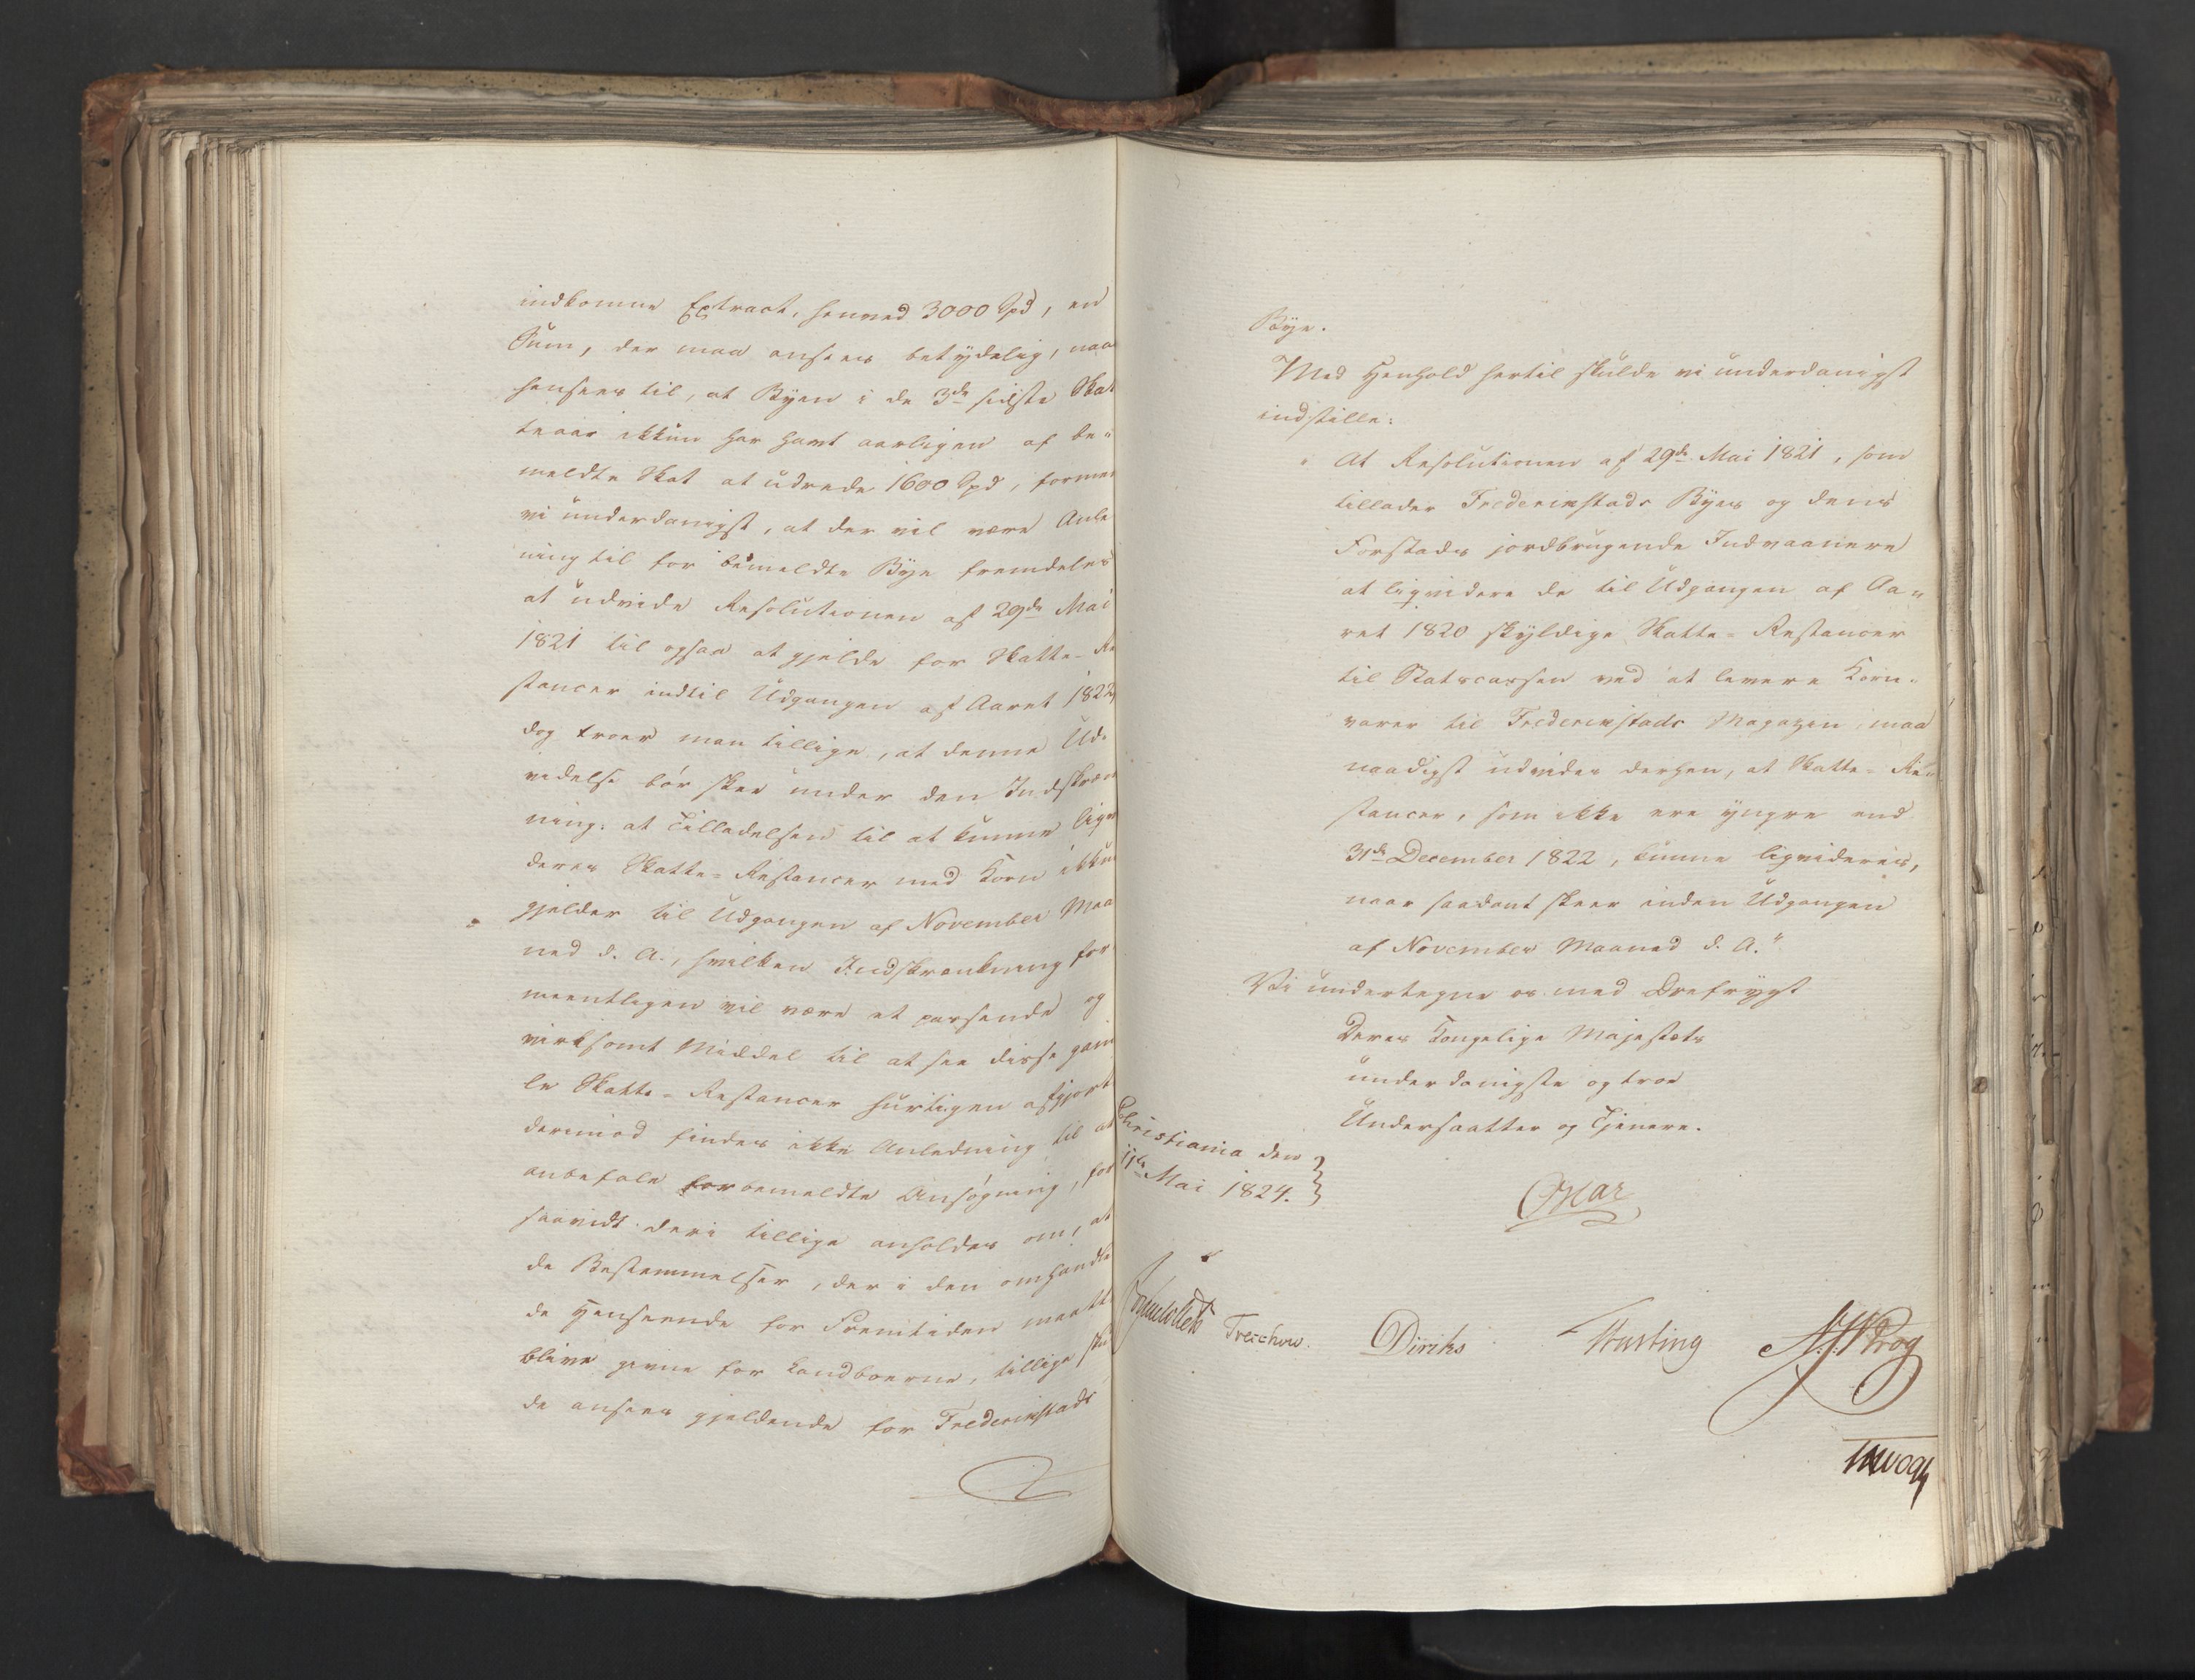 indkomne Extract, henved 3000 Spd, en
Sum, der maa ansees betydelig, naa
hensees til, at Byen i de 3de sidste Skat
teaar ikkun har havt aarligen af be=
meldte Skat at udrede 1600 Spd, formene
vi underdanigst, at der vil være Anle
ning til for bemeldte Bye fremdeles
at udvide Resolutionen af 29de Mai
1821 til ogsaa at gjelde for Skatte-Re
stancer indtil Udgangen af Aaret 1822,
dog troer man tillige, at denne Ud=
videlse bør skee under den Indskræn
ning: at Tilladelsen til at kunne liqvi
deres Skatte=Restancer med Korn ikkun
gjelder til Udgangen af November Maa
ned d. A., hvilken Indskrænkning for
meentligen vil være et passende og
virksomt Middel til at see disse gam
le Skatte=Restancer hurtigen afgjort
derimod findes ikke Anledning til at
anbefale forbemeldte Ansøgning, for
saavidt deri tillige anholdes om, at
de Bestemmelser, der i den omhandle
de Henseende for Fremtiden maatte
blive givne for Landboerne, tillige skul
de ansees gjeldende for Frederikstads
Bye.
Med Henhold hertil skulde vi underdanigst
indstille:
" At Resolutionen af 29de Mai 1821, som
tillader Frederikstads Byes og dens
Forstads jordbrugende Indvaanere
at liqvidere de til Udgangen af Aa=
ret 1820 skyldige Skatte=Restancer
til Statscassen ved at levere Korn=
varer til Frederikstads Magazin, maa
naadigst udvides derhen, at Skatte=Re=
stancer, som ikke ere yngre end
31de December 1822, kunne liqvideres,
naar saadant skeer inden Udgangen
af November Maaned d. A."
Vi undertegne os med Ærefrygt
Deres Kongelige Majestets
underdanigste og troe
Undersaatter og Tjenere.
Christiania den
11te Mai 1824.
Oscar
Treschow. Diriks Fasting